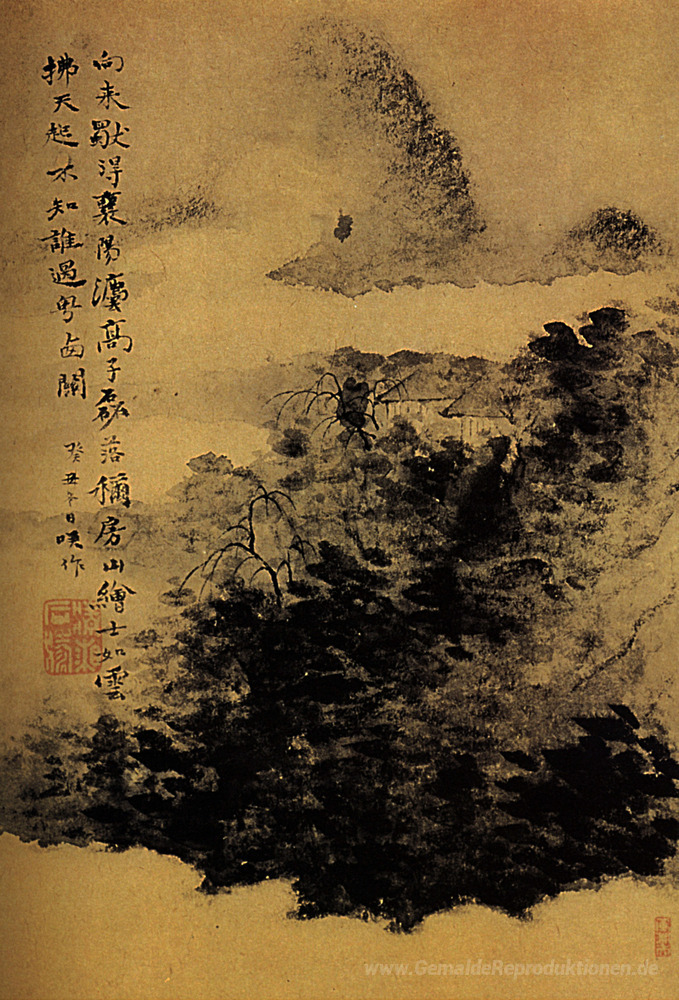 向来得襄陽高子磊落稱房山繪士如雲
拂天起知誰過關
癸丑冬日作
www.GemaldeReproduktionen.de